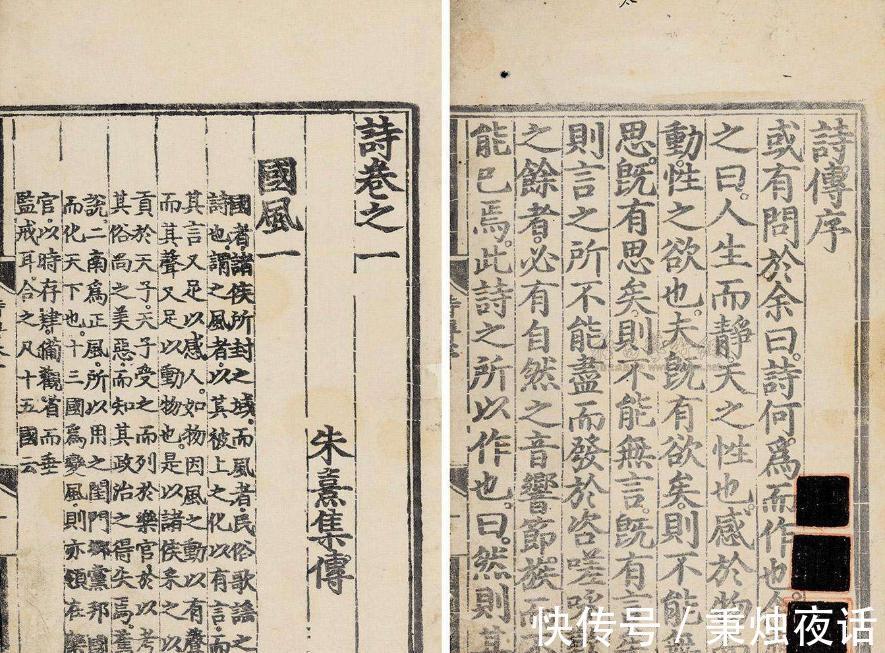 詩傳序
或有問於余曰。詩何爲而作也。
之曰。人生而靜。天之性也。感於物
動。性之欲也。夫旣有欲矣。則不能無
思。旣有思矣。則不能無言。旣有言
則言之所不能盡。而發於咨嗟
之餘者。必有自然之音響節族而
能已焉。此詩之所以作也。曰。然則其
詩卷之一
朱熹集傳
國風一
國者。諸侯所封之域。而風者。民俗歌謠之
詩也。謂之風者。以其被上之化以有言。而
其言又足以感人。如物因風之動以有聲
而其聲又足以動物也。是以諸侯采之以
貢於天子。天子受之而列於樂官。於以考
其俗尚之美惡。而知其政治之得失焉。舊
說。二南爲正風。所以用之閨門鄉黨邦國
而化天下也。十三國爲變風。則亦領在樂
官。以時存肄。備觀省而垂
監戒耳。合之凡十五國云
快传号 / 秉烛夜话